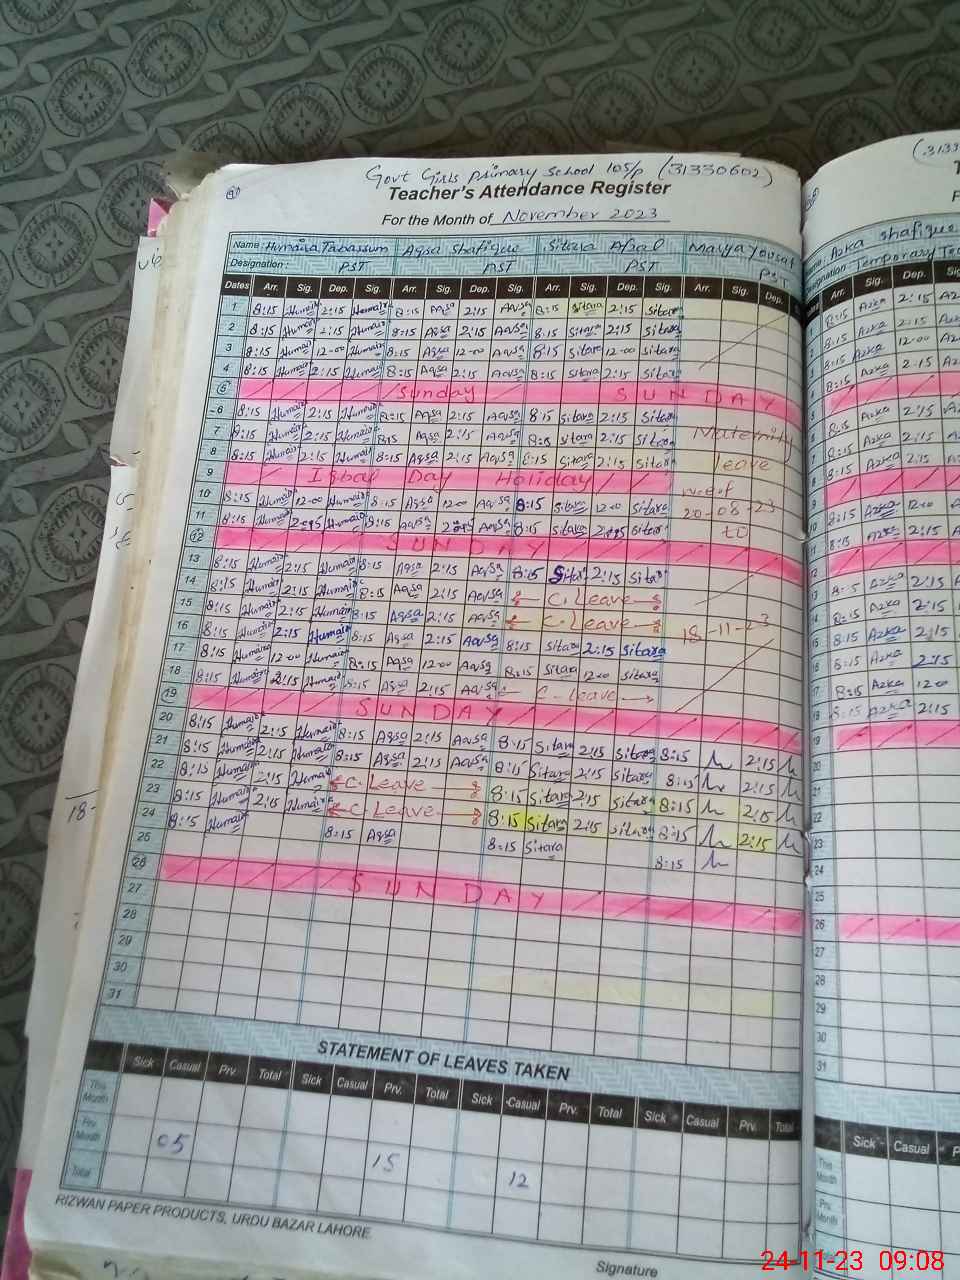 Govt Girls primary School 105/p (31330602)
Teacher's Attendance Register
For the Month of November 2023
Name: Humaira Tabassum Aqsa Shafique Sitara Afzal Marya Yousaf
Designation: PST PST PST
Dates Arr. Sig. Dep. Sig. Arr. Sig. Dep. Sig. Arr. Sig. Dep. Sig. Arr. Sig. Dep.
1 8:15 Humaira 2:15 Humaira 8:15 Aqsa 2:15 Aqsa 8:15 Sitara 2:15 Sitara
2 8:15 Humaira 2:15 Humaira 8:15 Aqsa 2:15 Aqsa 8:15 Sitara 2:15 Sitara
3 8:15 Humaira 12-00 Humaira 8:15 Aqsa 12-00 Aqsa 8:15 Sitara 12-00 Sitara
4 8:15 Humaira 2:15 Humaira 8:15 Aqsa 2:15 Aqsa 8:15 Sitara 2:15 Sitara
5 Sunday SUNDAY
6 8:15 Humaira 2:15 Humaira 8:15 Aqsa 2:15 Aqsa 8:15 Sitara 2:15 Sitara
7 8:15 Humaira 2:15 Humaira 8:15 Aqsa 2:15 Aqsa 8:15 Sitara 2:15 Sitara Maternity
8 8:15 Humaira 2:15 Humaira 8:15 Aqsa 2:15 Aqsa 8:15 Sitara 2:15 Sitara leave
9 Iqbal Day Holiday
10 8:15 Humaira 12-00 Humaira 8:15 Aqsa 12-00 Aqsa 8:15 Sitara 12-00 Sitara w.e.f
11 8:15 Humaira 2:15 Humaira 8:15 Aqsa 2:15 Aqsa 8:15 Sitara 2:15 Sitara 20-08-23
12 SUNDAY to
13 8:15 Humaira 2:15 Humaira 8:15 Aqsa 2:15 Aqsa 8:15 Sitara 2:15 Sitara
14 8:15 Humaira 2:15 Humaira 8:15 Aqsa 2:15 Aqsa C. Leave
15 8:15 Humaira 2:15 Humaira 8:15 Aqsa 2:15 Aqsa C. Leave
16 8:15 Humaira 2:15 Humaira 8:15 Aqsa 2:15 Aqsa 8:15 Sitara 2:15 Sitara 18-11-23
17 8:15 Humaira 12-00 Humaira 8:15 Aqsa 12-00 Aqsa 8:15 Sitara 12-00 Sitara
18 8:15 Humaira 2:15 Humaira 8:15 Aqsa 2:15 Aqsa C-leave
19 SUNDAY
20 8:15 Humaira 2:15 Humaira 8:15 Aqsa 2:15 Aqsa 8:15 Sitara 2:15 Sitara 8:15 2:15
21 8:15 Humaira 2:15 Humaira 8:15 Aqsa 2:15 Aqsa 8:15 Sitara 2:15 Sitara 8:15 2:15
22 8:15 Humaira 2:15 Humaira C-Leave 8:15 Sitara 2:15 Sitara 8:15 2:15
23 8:15 Humaira 2:15 Humaira C-Leave 8:15 Sitara 2:15 Sitara 8:15 2:15
24 8:15 Humaira 8:15 Aqsa 8:15 Sitara 8:15
25
26 SUNDAY
27
28
29
30
31
STATEMENT OF LEAVES TAKEN
Sick Casual Prv. Total Sick Casual Prv. Total Sick Casual Prv. Total Sick Casual Prv. Total
This Month
Prv. Month 05 15 12
Total
RIZWAN PAPER PRODUCTS, URDU BAZAR LAHORE.
Signature
Azka shafique
Temporary
Arr. Sig. Dep.
8:15 Azka 2:15
8:15 Azka 2:15
8:15 Azka 12-00
8:15 Azka 2:15
8:15 Azka 2:15
8:15 Azka 2:15
8:15 Azka 2:15
8:15 Azka 12-00
8:15 Azka 2:15
8:15 Azka 2:15
8:15 Azka 2:15
8:15 Azka 2:15
8:15 Azka 2:15
8:15 Azka 12-00
8:15 Azka 2:15
19
20
21
22
23
24
25
26
27
28
29
30
31
Sick Casual
This Month
Prv. Month
Total
24-11-23 09:08